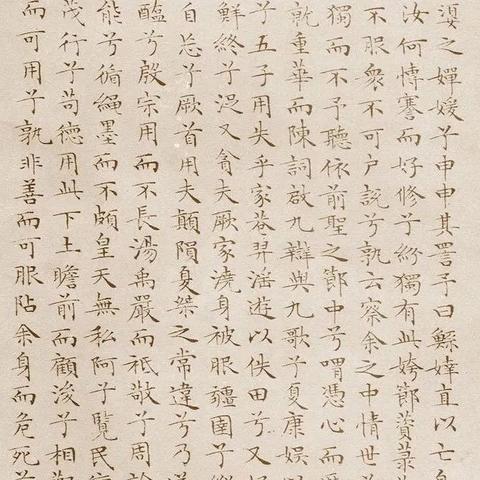 嬃之嬋媛兮申申其詈予曰鯀婞直以亡身
汝何博謇而好修兮紛獨有此姱節薋菉
不服衆不可户說兮孰云察余之中情世
獨而不予聽依前聖之節中兮喟憑心而
就重華而陳詞啟九辯與九歌兮夏康娛以
兮五子用失乎家巷羿淫遊以佚田兮又好
鮮終兮浞又貪夫厥家澆身被服疆圉兮
自忘兮厥首用夫顛隕夏桀之常違兮乃
醢兮殷宗用而不長湯禹嚴而祗敬兮周
能兮循繩墨而不頗皇天無私阿兮覽民
茂行兮苟德用此下土瞻前而顧後兮相觀
而可用兮孰非善而可服阽余身而危死